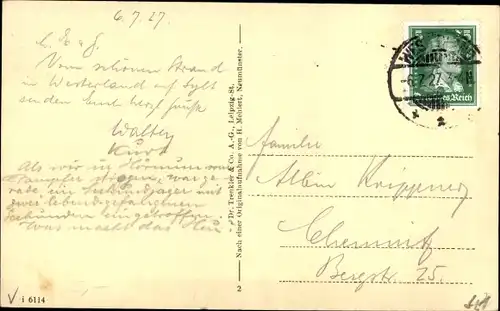 6.7.27
Vom schönen Strand
in Westerland auf Sylt
senden Euch herzl. Grüße
Walter
Kurt
Als wir in Hörnum vom
Dampfer stiegen, war ge-
rade ein Seehundjäger mit
zwei lebendgefangenen
Seehunden eingetroffen.
Was macht das Heu
Dr. Trenkler & Co. A.-G., Leipzig-St.
Nach einer Originalaufnahme von H. Mehlert, Neumünster.
2
Deutsches Reich
6.7.27
Familie
Albin
Chemnitz
Bergstr. 25.
V i 6114